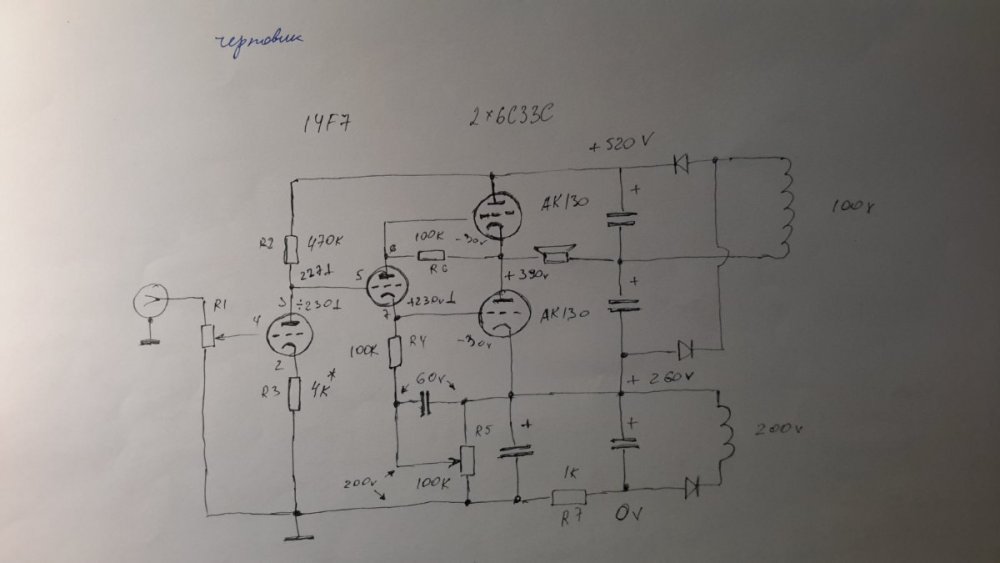 черновик
14F7
2×6С33С
+520V
AK130
100v
R2
470K
100K
-30v
6
R6
227⊥
5
+390v
3
÷230⊥
+230v⊥
7
AK130
R1
4
-30v
100K
R4
2
R3
4K*
60v
+260v
R5
200v
200v
100K
1K
R7
0v